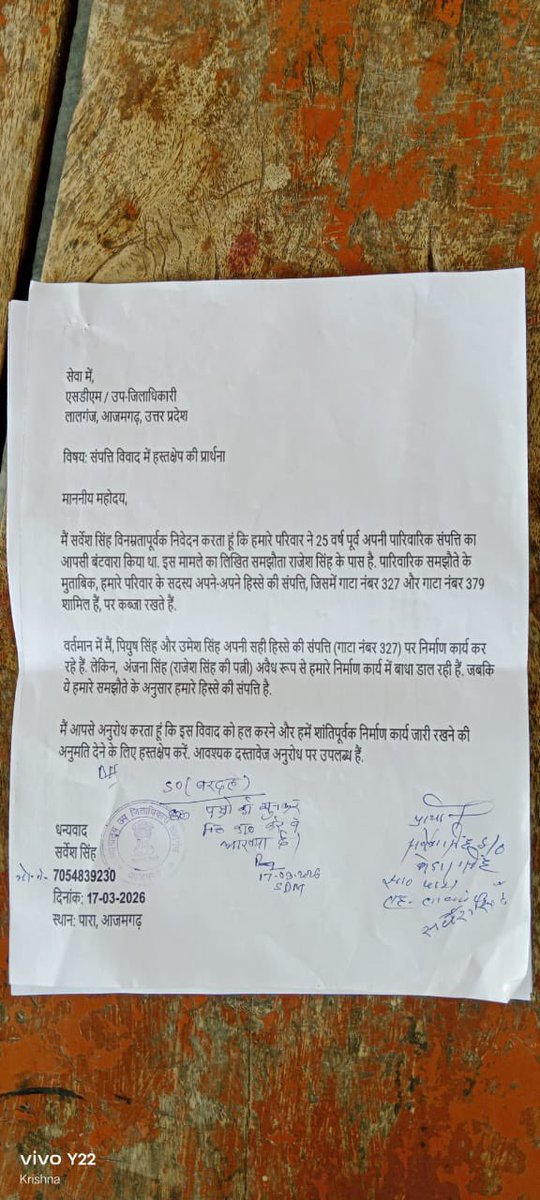 सेवा में,
एसडीएम / उप-जिलाधिकारी
लालगंज, आजमगढ़, उत्तर प्रदेश
विषय: संपत्ति विवाद में हस्तक्षेप की प्रार्थना
माननीय महोदय,
मैं सर्वेश सिंह विनम्रतापूर्वक निवेदन करता हूं कि हमारे परिवार ने 25 वर्ष पूर्व अपनी पारिवारिक संपत्ति का
आपसी बंटवारा किया था. इस मामले का लिखित समझौता राजेश सिंह के पास है. पारिवारिक समझौते के
मुताबिक, हमारे परिवार के सदस्य अपने-अपने हिस्से की संपत्ति, जिसमें गाटा नंबर 327 और गाटा नंबर 379
शामिल हैं, पर कब्जा रखते हैं.
वर्तमान में मैं, पियुष सिंह और उमेश सिंह अपनी सही हिस्से की संपत्ति (गाटा नंबर 327) पर निर्माण कार्य कर
रहे हैं. लेकिन, अंजना सिंह (राजेश सिंह की पत्नी) अवैध रूप से हमारे निर्माण कार्य में बाधा डाल रही हैं. जबकि
ये हमारे समझौते के अनुसार हमारे हिस्से की संपत्ति है.
मैं आपसे अनुरोध करता हूं कि इस विवाद को हल करने और हमें शांतिपूर्वक निर्माण कार्य जारी रखने की
अनुमति देने के लिए हस्तक्षेप करें. आवश्यक दस्तावेज अनुरोध पर उपलब्ध हैं.
SO (बरदह)
पक्षों को सुनकर
17-03-2026
SDM
प्रार्थी
धन्यवाद
सर्वेश सिंह
मो०नं० 7054839230
दिनांक: 17-03-2026
स्थान: पारा, आजमगढ़
vivo Y22
Krishna